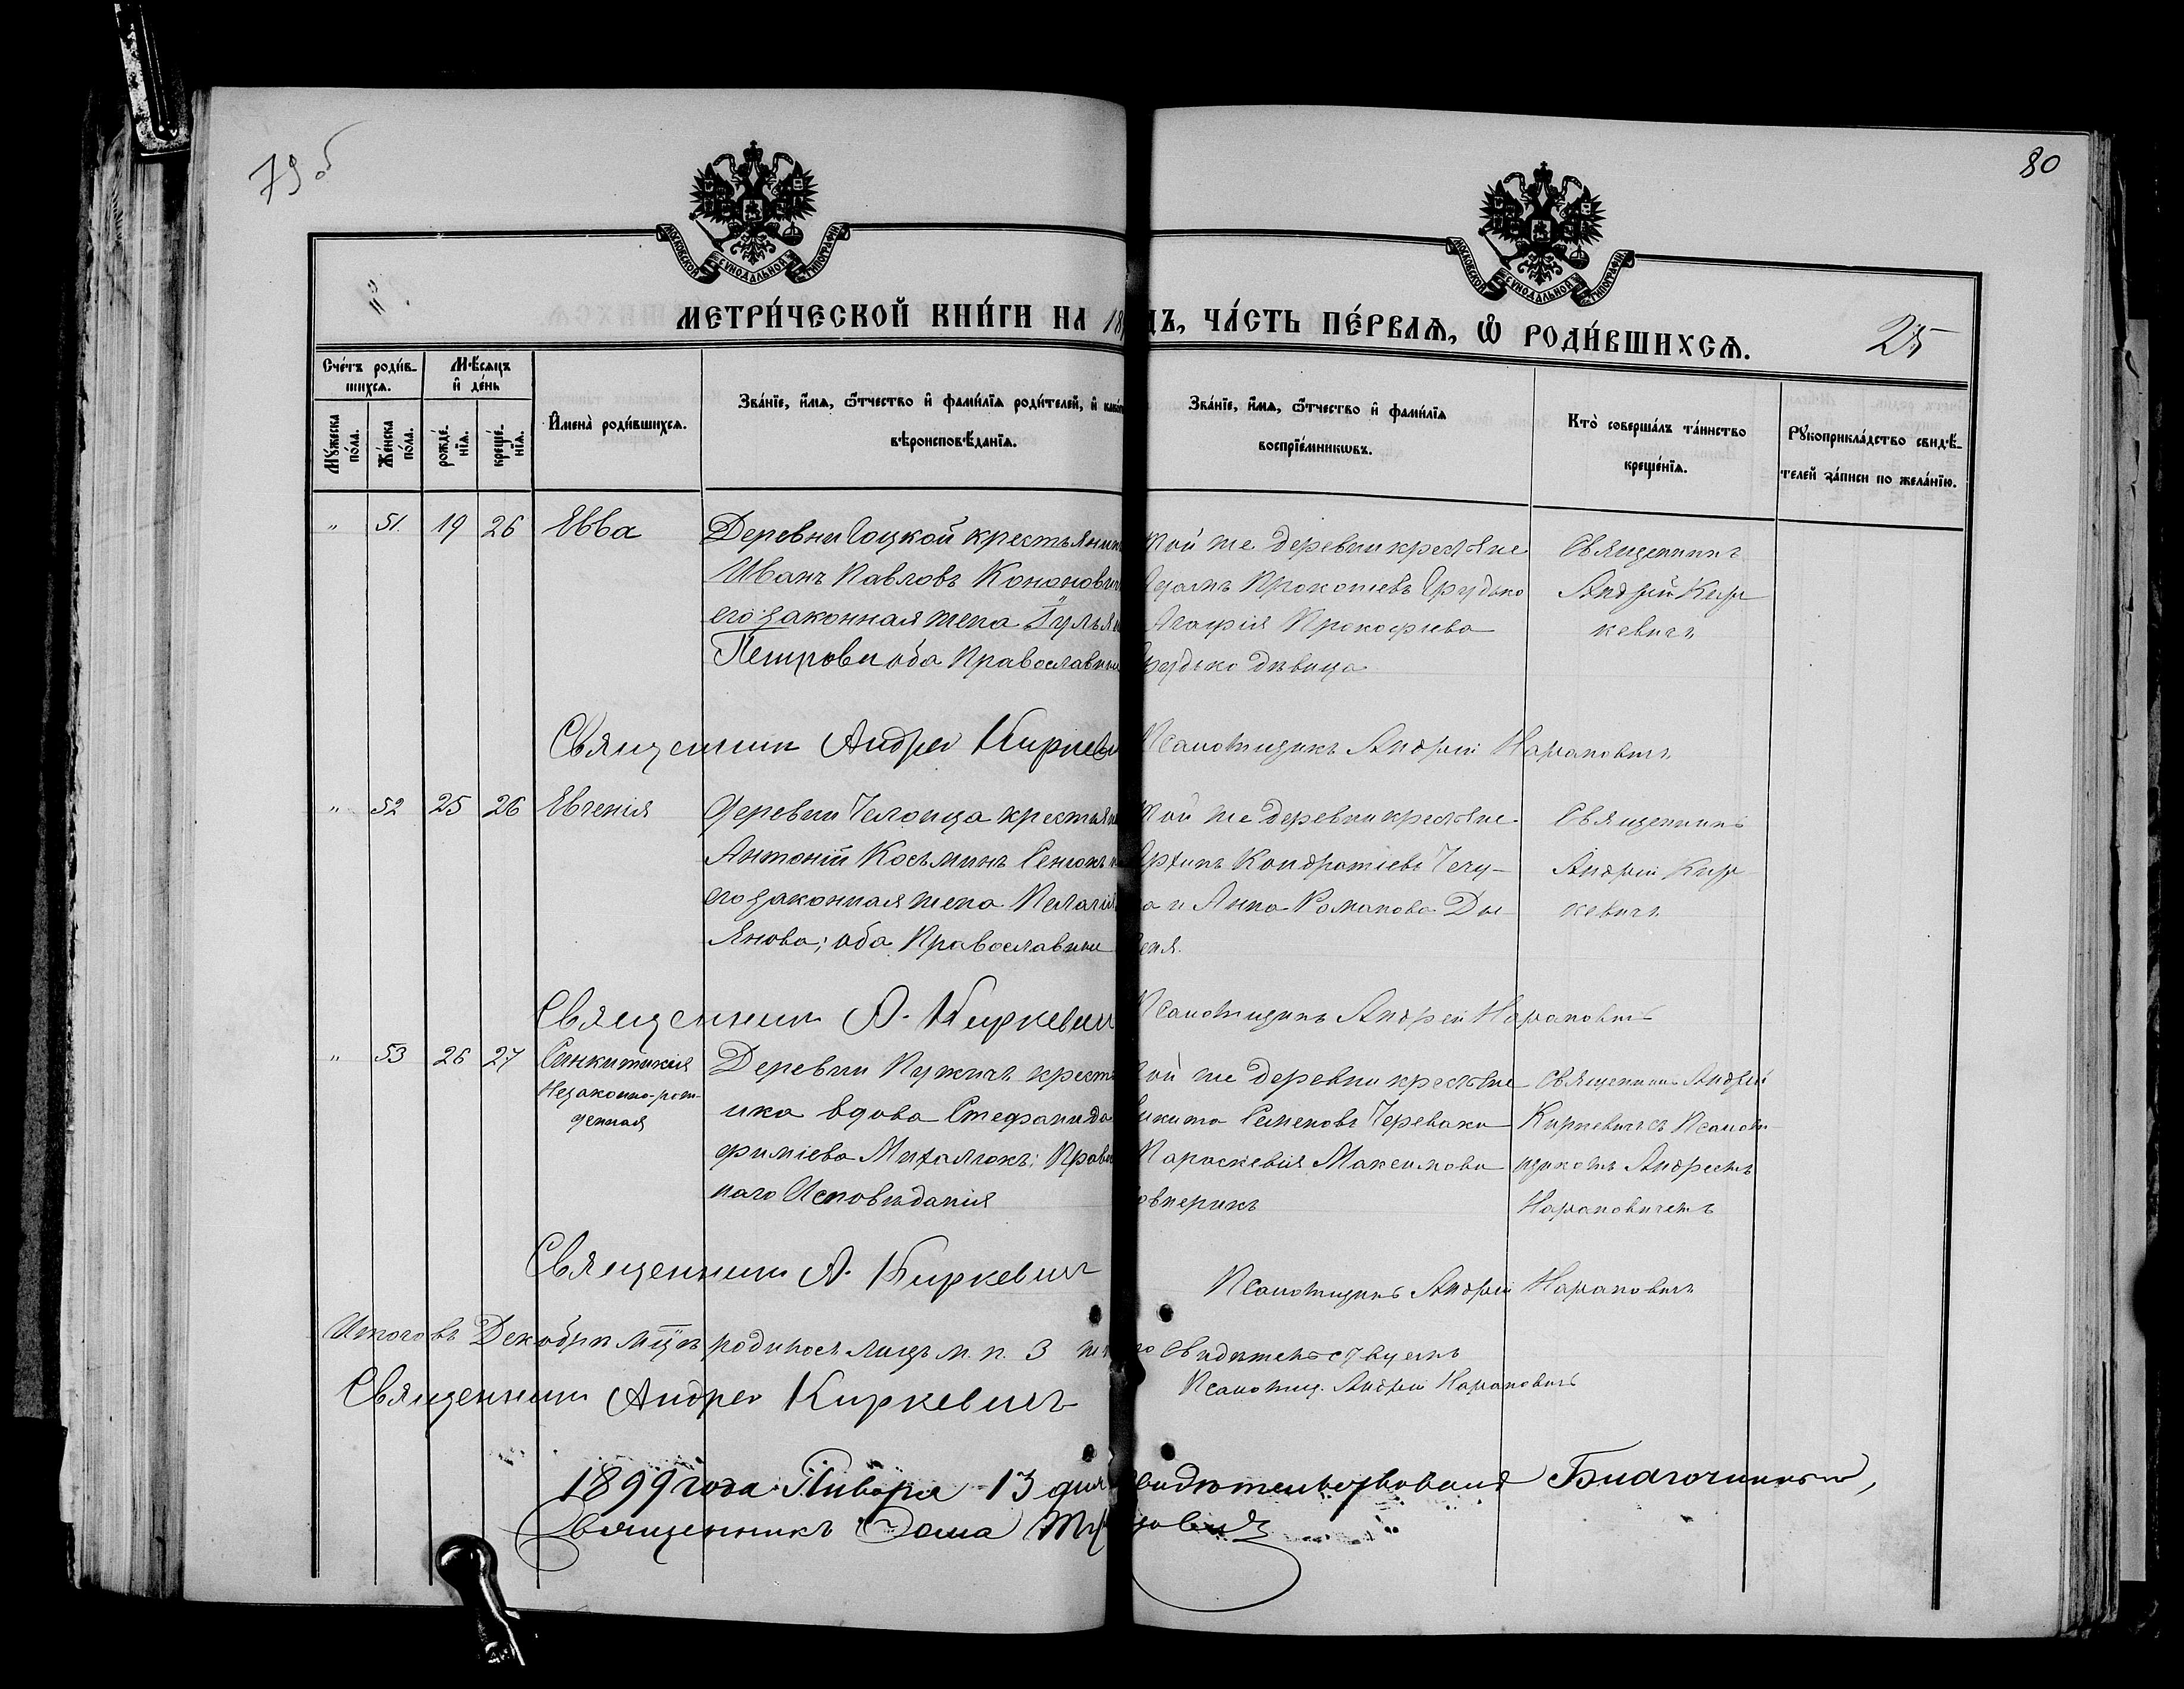 79 об
80
МОСКОВСКОЙ СѴНОДАЛЬНОЙ ТИПОГРАФІИ
МОСКОВСКОЙ СѴНОДАЛЬНОЙ ТИПОГРАФІИ
МЕТРИ́ЧЕСКОЙ КНИ́ГИ НА 18 ДЪ, ЧА́СТЬ ПЕ́РВАѦ, Ѽ РОДИ́ВШИХСѦ.
25
Сче́тъ роди́в-
шихсѧ.
Мѣ́сѧцъ
и҆ де́нь
Мꙋ́жеска
по́ла.
Же́нска
по́ла.
рожде́-
нїѧ.
креще́-
нїѧ.
И҆мена̀ роди́вшихсѧ.
Зва́нїе, и҆́мѧ, ѻ҆́тчество и҆ фами́лїѧ роди́телей, и҆ како́
вѣроисповѣ́данїѧ.
Зва́нїе, и҆́мѧ, ѻ҆́тчество и҆ фами́лїѧ
воспрїе́мникѡвъ.
Кто̀ соверша́лъ та́инство
креще́нїѧ.
Рꙋкоприкла́дство свидѣ́-
телей за́писи по жела́нїю.
" 51. 19 26 Евва
Деревни Гоцкой крестьянин
Иванъ Павловъ Кононович
его законная жена Іулья
Петрова оба Православные
Той же деревни крестьяне
Прокопіевъ Грудько
Агафія Прокофіева
Грудько дѣвица
Священникъ
Андрей Кир
кевичъ
Священник Андрей Киркеви
Псаломщикъ Андрей Нарановичъ
" 52 25 26 Евгенія
Деревни Челонца крестьян
Антоній Косьминъ Сенюкъ и
его законная жена Пелагія
Янова; оба Православные
Той же деревни крестьяне
Архипъ Кондратіевъ Чечу-
ра и Анна Романова Ды-
Священникъ
Андрей Кир
кевичъ
Священник А. Киркевич
Псаломщикъ Андрей Нарановичъ
" 53 26 27 Синклитикія
Незаконно-рож-
денная
Деревни Пужичъ кресть
нка вдова Стефанида
фиміева Михалюкъ; Право
наго Исповѣданія
Той же деревни крестьяне
Никита Семеновъ Черевако
Параскевія Максимова
Священникъ Андрей
Киркевичъ съ Псалом-
щикомъ Андреемъ
Нарановичемъ
Священник А. Киркевич
Псаломщикъ Андрей Нарановичъ
Итого въ Декабрѣ мцѣ родилось лицъ м. п. 3
Свидѣтельствуемъ
Священник Андрей Киркевичъ
Псаломщ. Андрей Нарановичъ
1899 года Января 13 дня свидѣтельствовалъ Благочинный,
Священникъ Ѳома